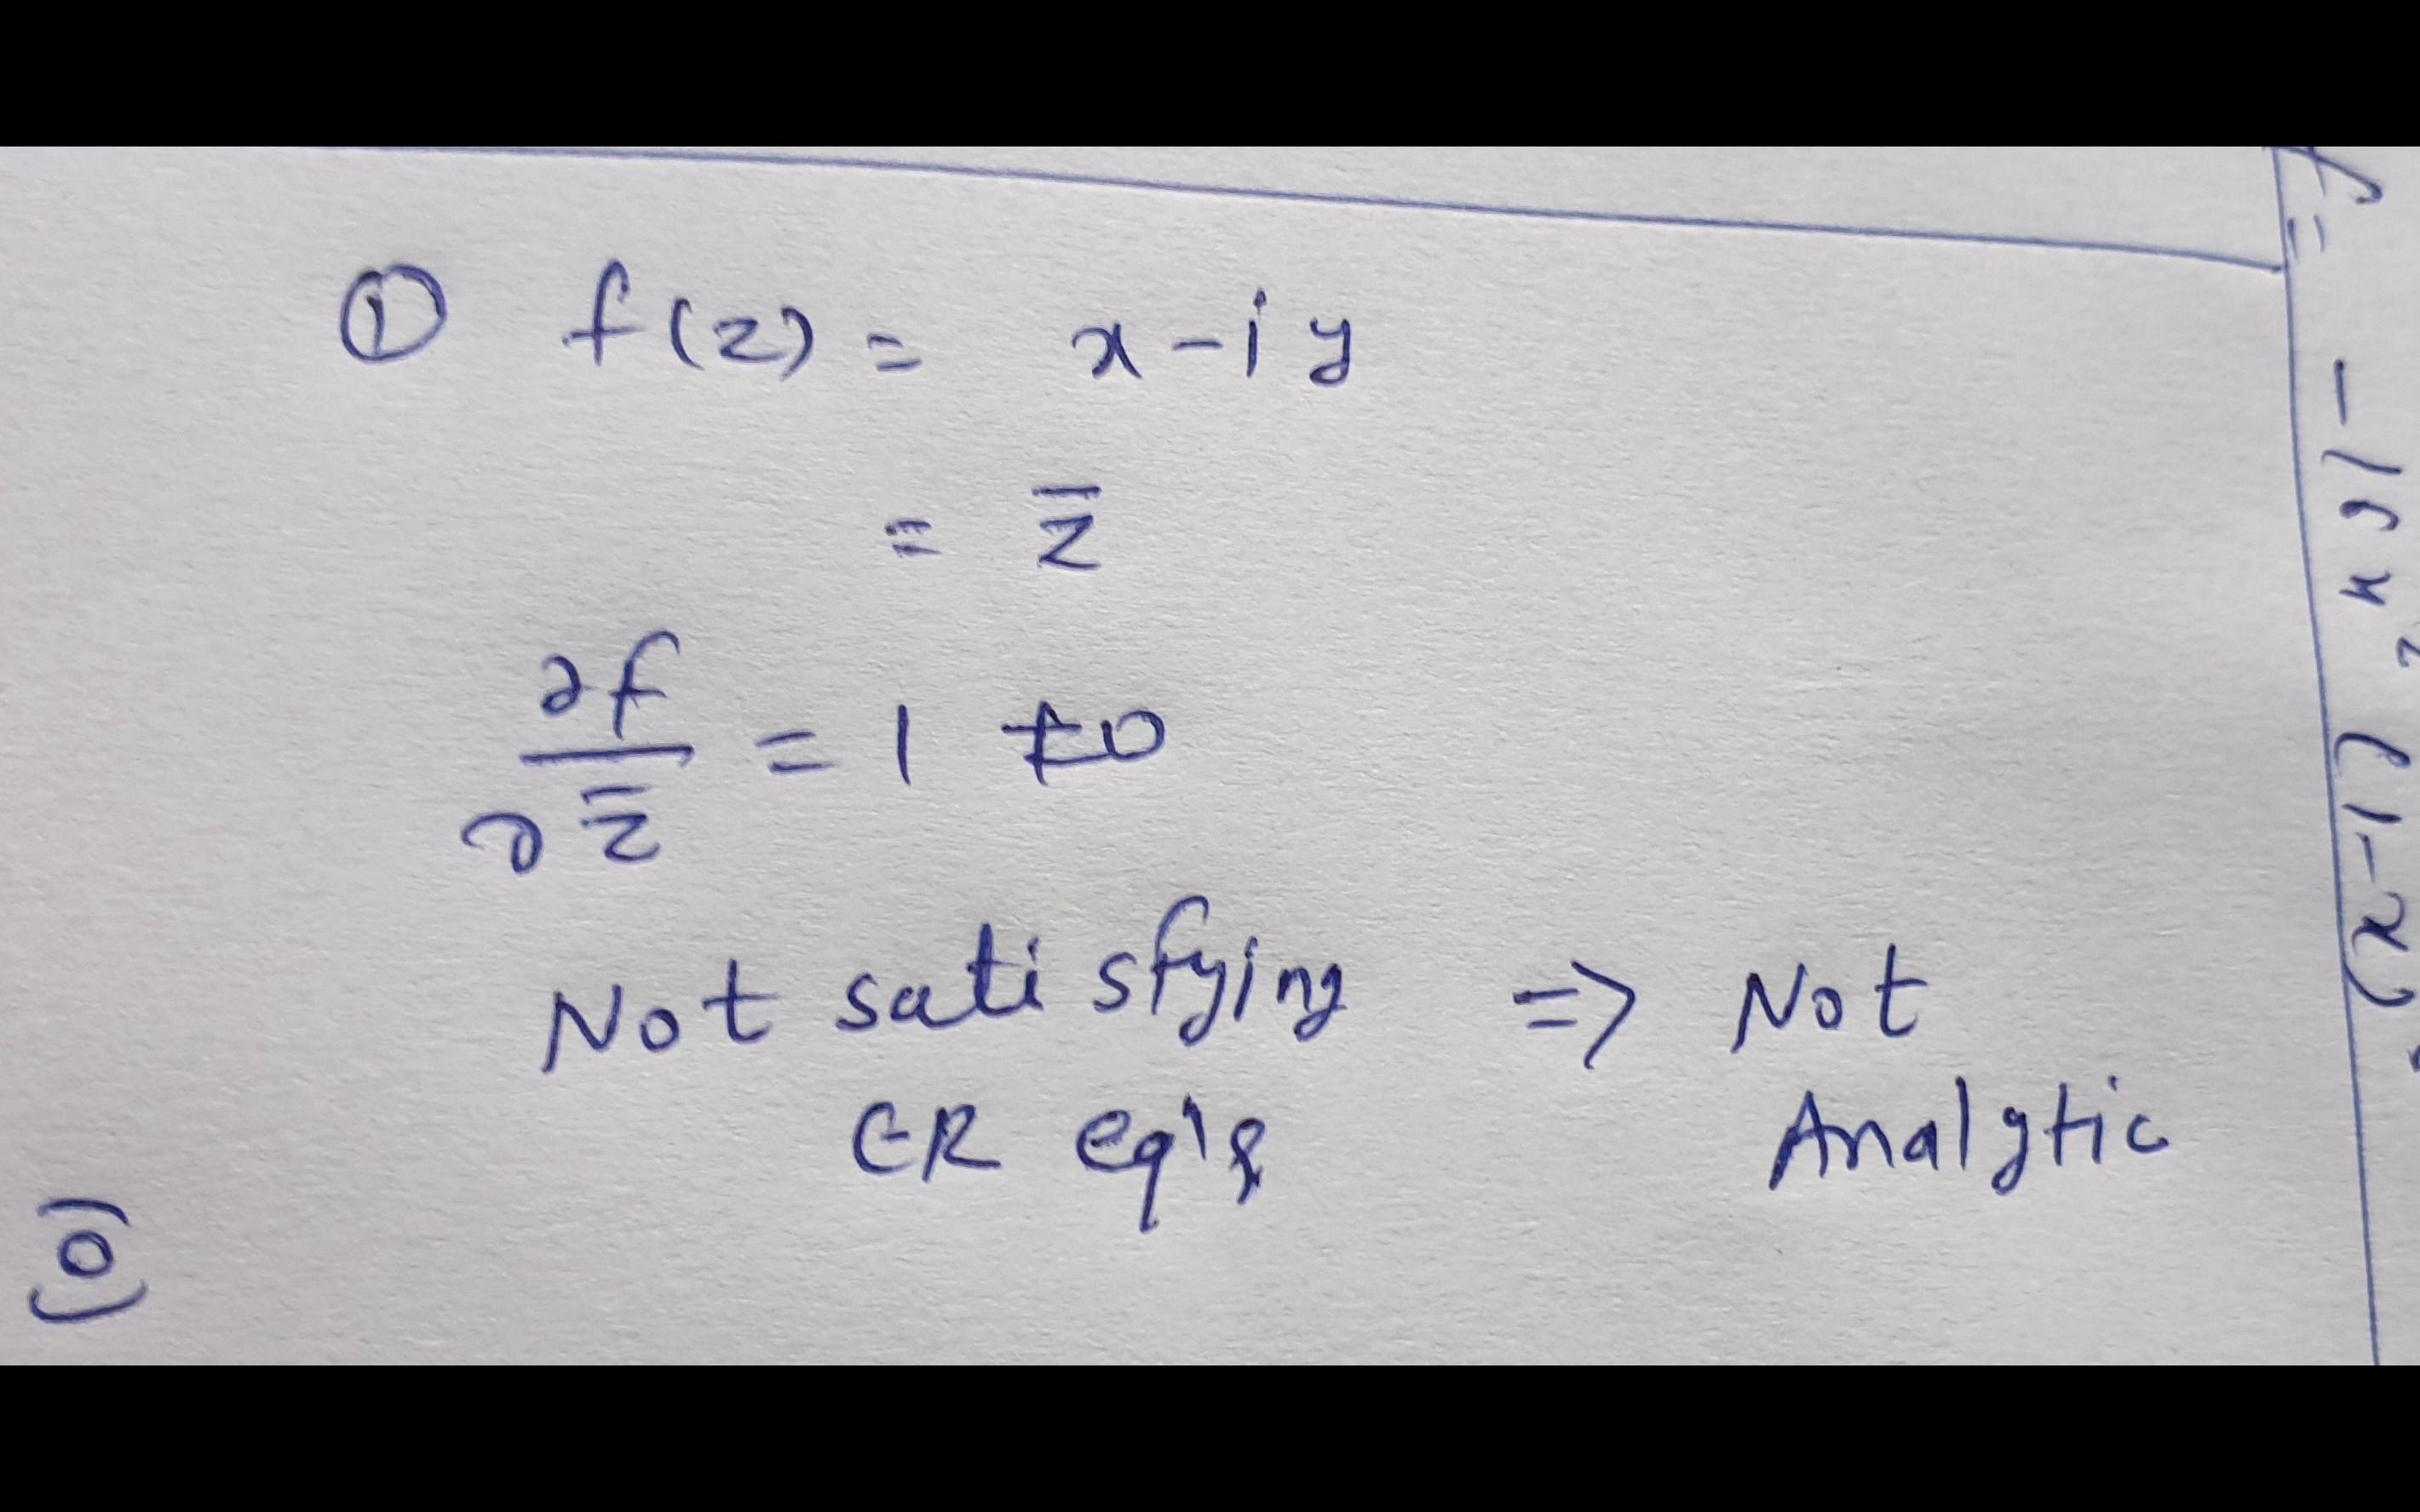 ① f(z) = x - i y
= z̅
∂f/∂z̅ = 1 ≠ 0
Not satisfying => Not
CR eq's Analytic